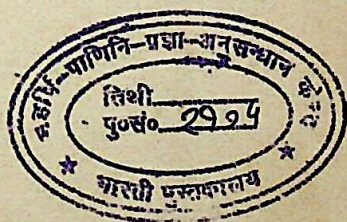 महर्षि-पाणिनि-प्रज्ञा-अनुसन्धान
तिथी
पु०सं०
भारती पुस्तकालय